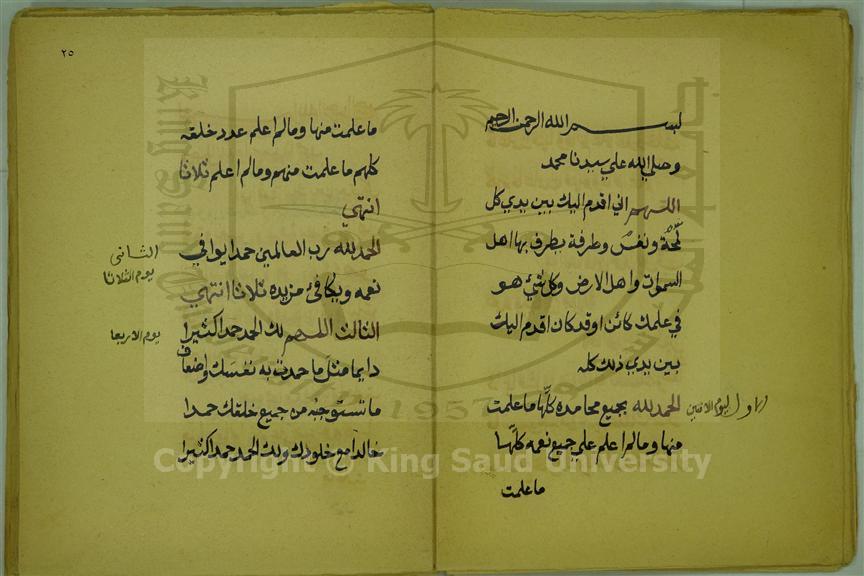 بسم الله الرحمن الرحيم
وصلي الله علي سيدنا محمد
اللهم اني اقدم اليك بين يدي كل
لمحة ونفس وطرفة يطرف بها اهل
السموات واهل الارض وكل شئ هو
في علمك كائن او قد كان اقدم اليك
بين يدي ذلك كله
الاول يوم الاثنين
الحمد لله بجميع محامده كلها ما علمت
منها وما لم اعلم علي جميع نعمه كلها
ما علمت
٢٥
ما علمت منها وما لم اعلم عدد خلقه
كلهم ما علمت منهم وما لم اعلم ثلاثا
انتهي
الحمد لله رب العالمين حمدا يوافي
الثاني
يوم الثلاثا
نعمه ويكافئ مزيده ثلاثا انتهي
الثالث اللهم لك الحمد حمدا كثيرا
يوم الاربعا
دايما مثل ما حمدت به نفسك واضعاف
ما تستوجبه من جميع خلقك حمدا
خالدا مع خلودك ولك الحمد حمدا كثيرا
Copyright © King Saud University
King Saud
1957